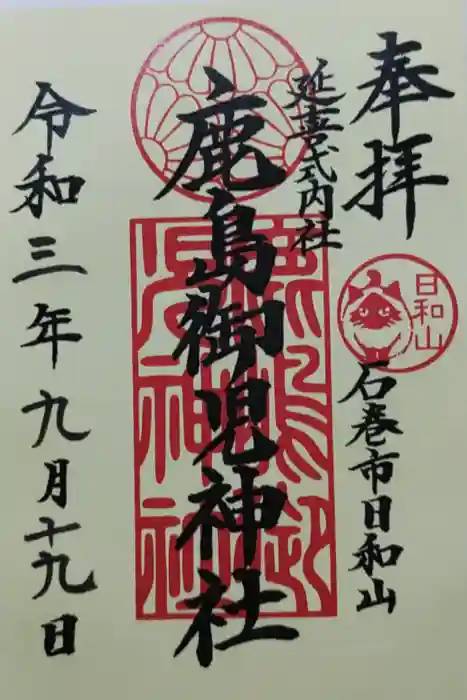 奉拝
日和山
石巻市日和山
延喜式内社
鹿島御児神社
令和三年九月十九日